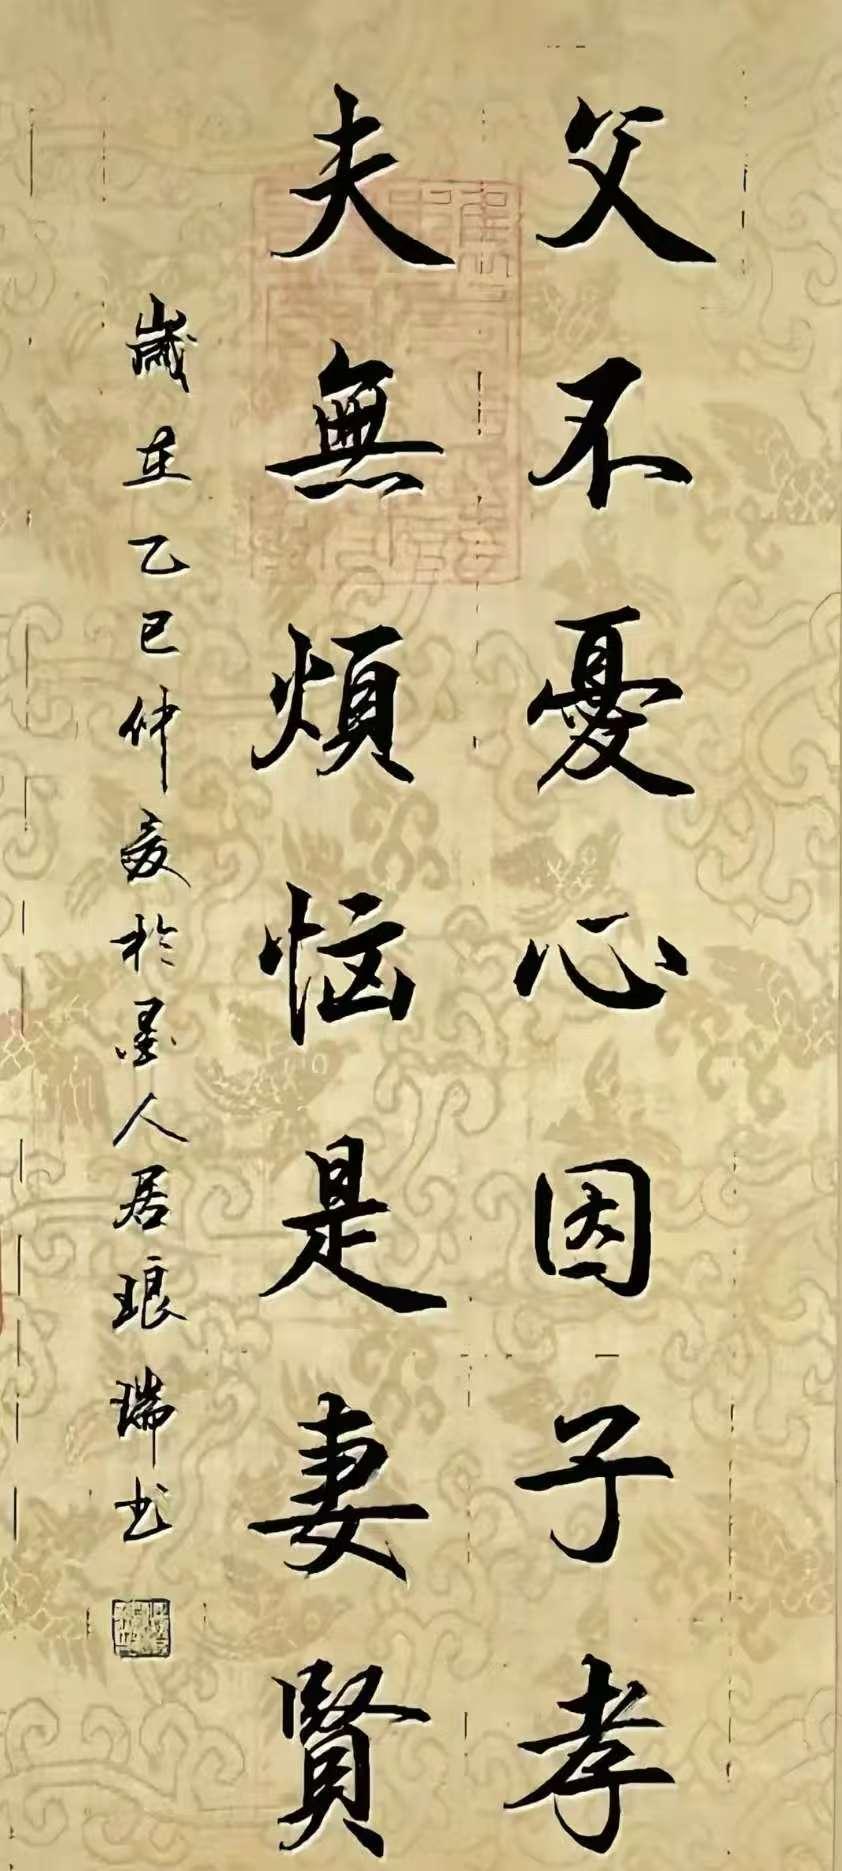 父不憂心因子孝
夫無煩恼是妻賢
歲在乙巳仲夏於墨人居琅瑞书